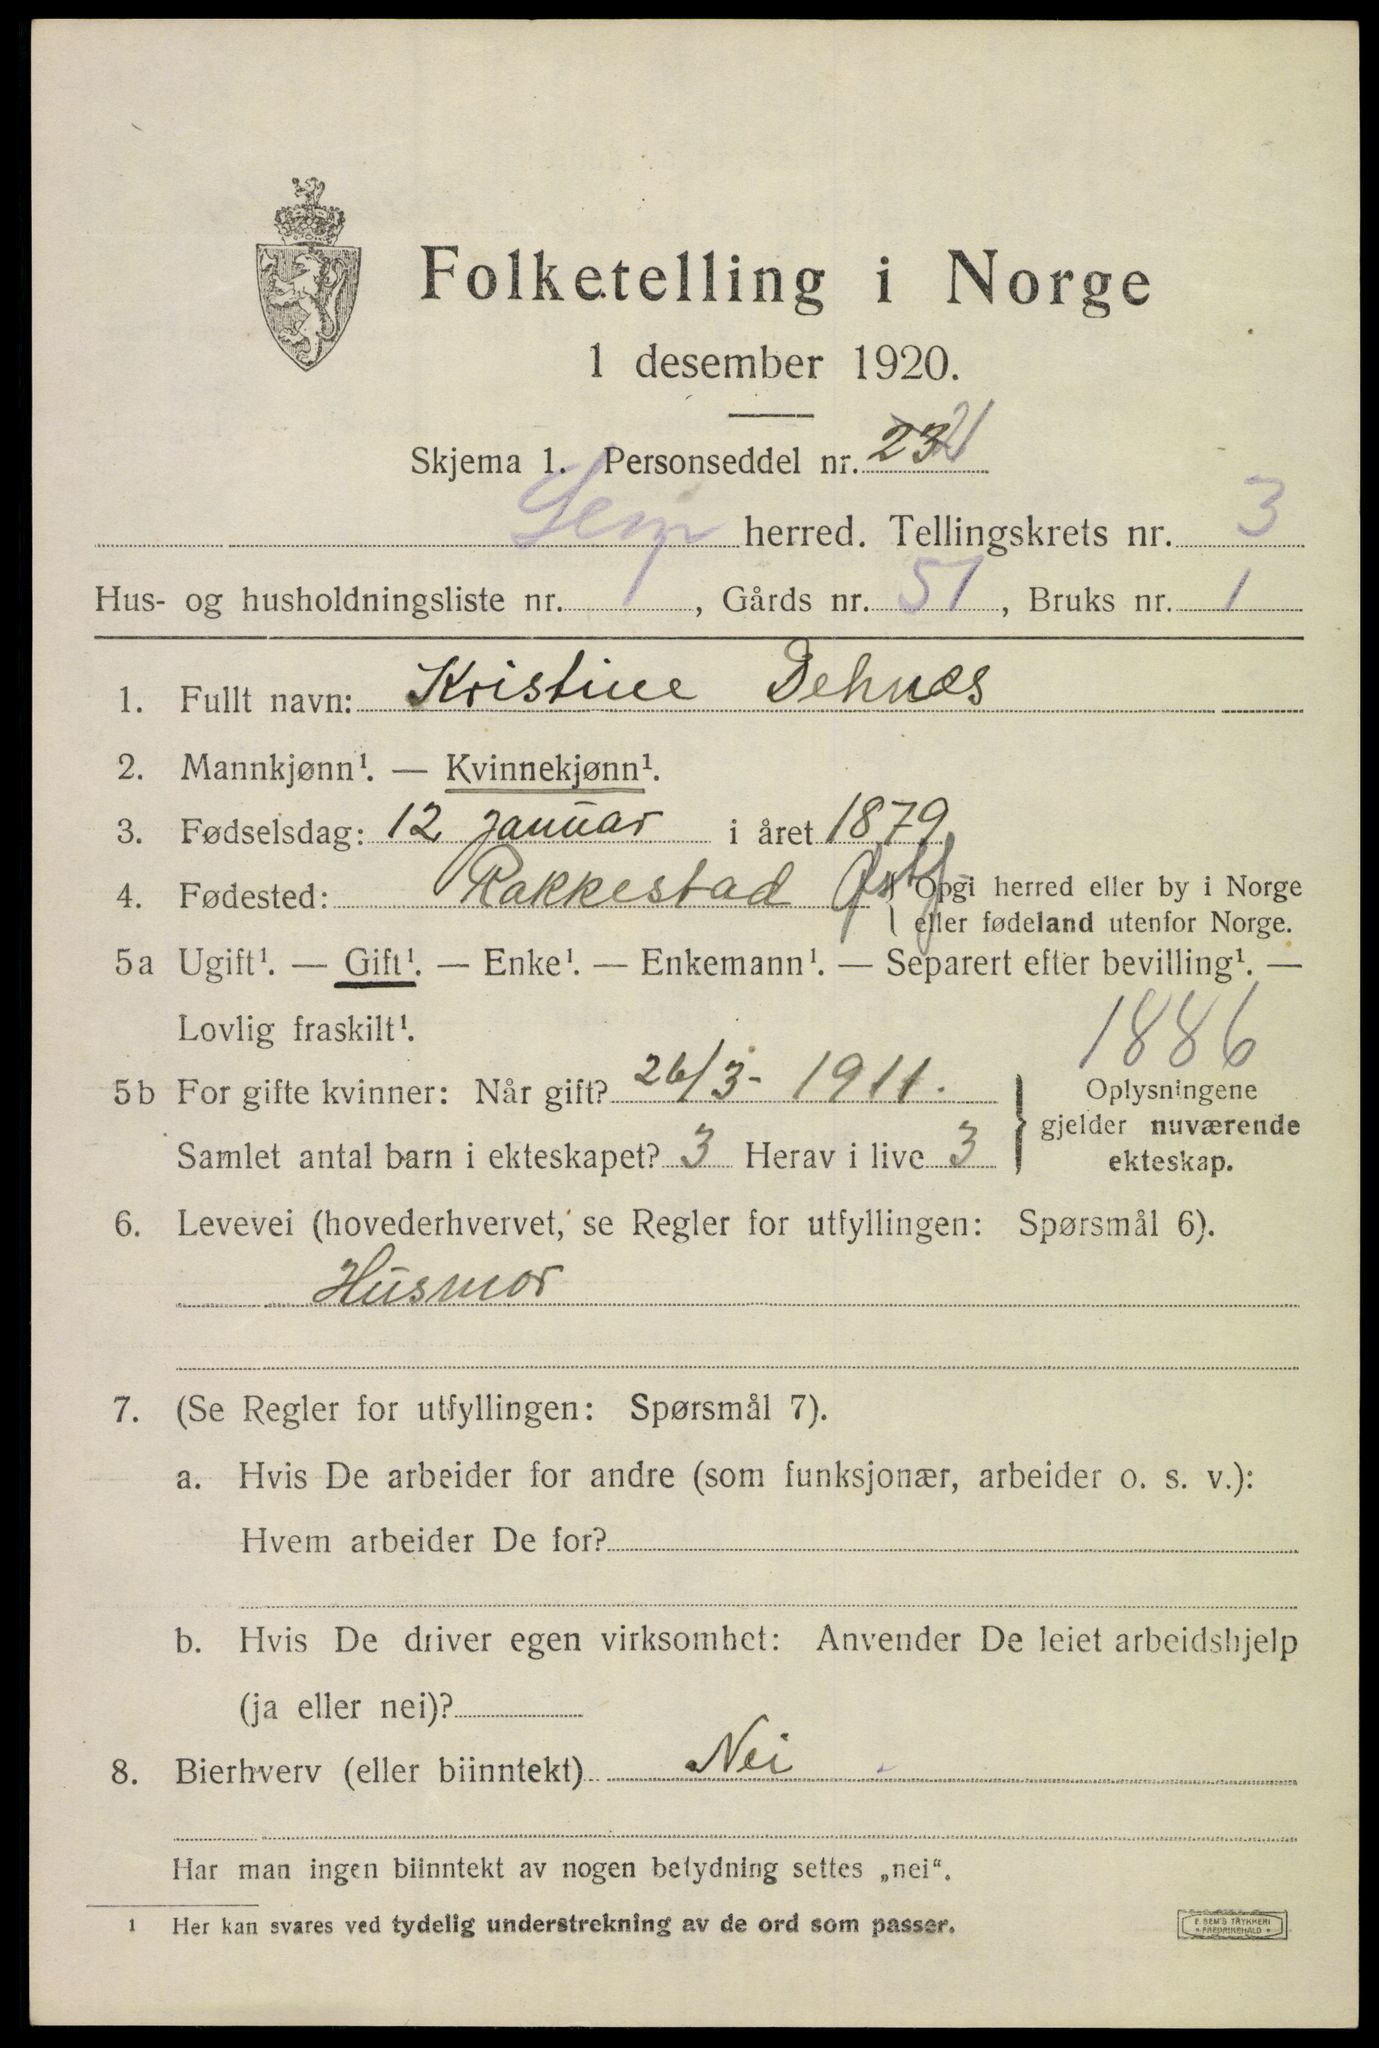 Folketelling i Norge
1 desember 1920.
Skjema 1. Personseddel nr. 23 21
Sem herred. Tellingskrets nr. 3
Hus- og husholdningsliste nr. 1, Gårds nr. 51, Bruks nr. 1
1. Fullt navn: Kristine Dehnæs
2. Mannkjønn¹. — Kvinnekjønn¹.
3. Fødselsdag: 12 januar i året 1879
4. Fødested: Rakkestad Østf { Opgi herred eller by i Norge
eller fødeland utenfor Norge.
5a Ugift¹. — Gift¹. — Enke¹. — Enkemann¹. — Separert efter bevilling¹. —
Lovlig fraskilt¹.
1886
5b For gifte kvinner: Når gift? 26/3- 1911. } Oplysningene
gjelder nuværende
Samlet antal barn i ekteskapet? 3 Herav i live 3 ekteskap.
6. Levevei (hovederhvervet, se Regler for utfyllingen: Spørsmål 6).
Husmor
7. (Se Regler for utfyllingen: Spørsmål 7).
a. Hvis De arbeider for andre (som funksjonær, arbeider o. s. v.):
Hvem arbeider De for?
b. Hvis De driver egen virksomhet: Anvender De leiet arbeidshjelp
(ja eller nei)?
8. Bierhverv (eller biinntekt) Nei
Har man ingen biinntekt av nogen betydning settes „nei“.
¹ Her kan svares ved tydelig understrekning av de ord som passer.
E. SEM'S TRYKKERI
FREDRIKSHALD